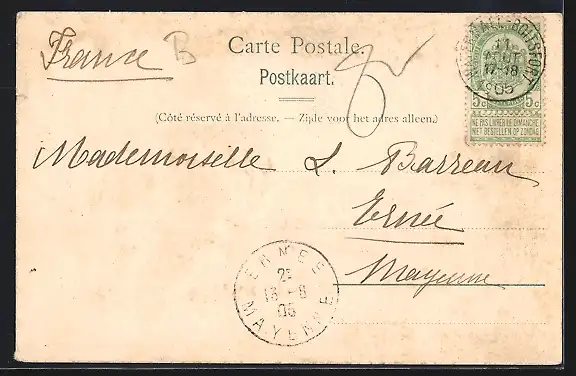 France B
Carte Postale.
Postkaart.
(Côté réservé à l'adresse. — Zijde voor het adres alleen.)
WATERMAEL-BOITSFORT
11
AOUT
17-18
1905
5c 5c
NE PAS LIVRER LE DIMANCHE
NIET BESTELLEN OP ZONDAG
Mademoiselle L. Barreau
Ernée
Mayenne
ERNEE
13 -8
05
MAYENNE